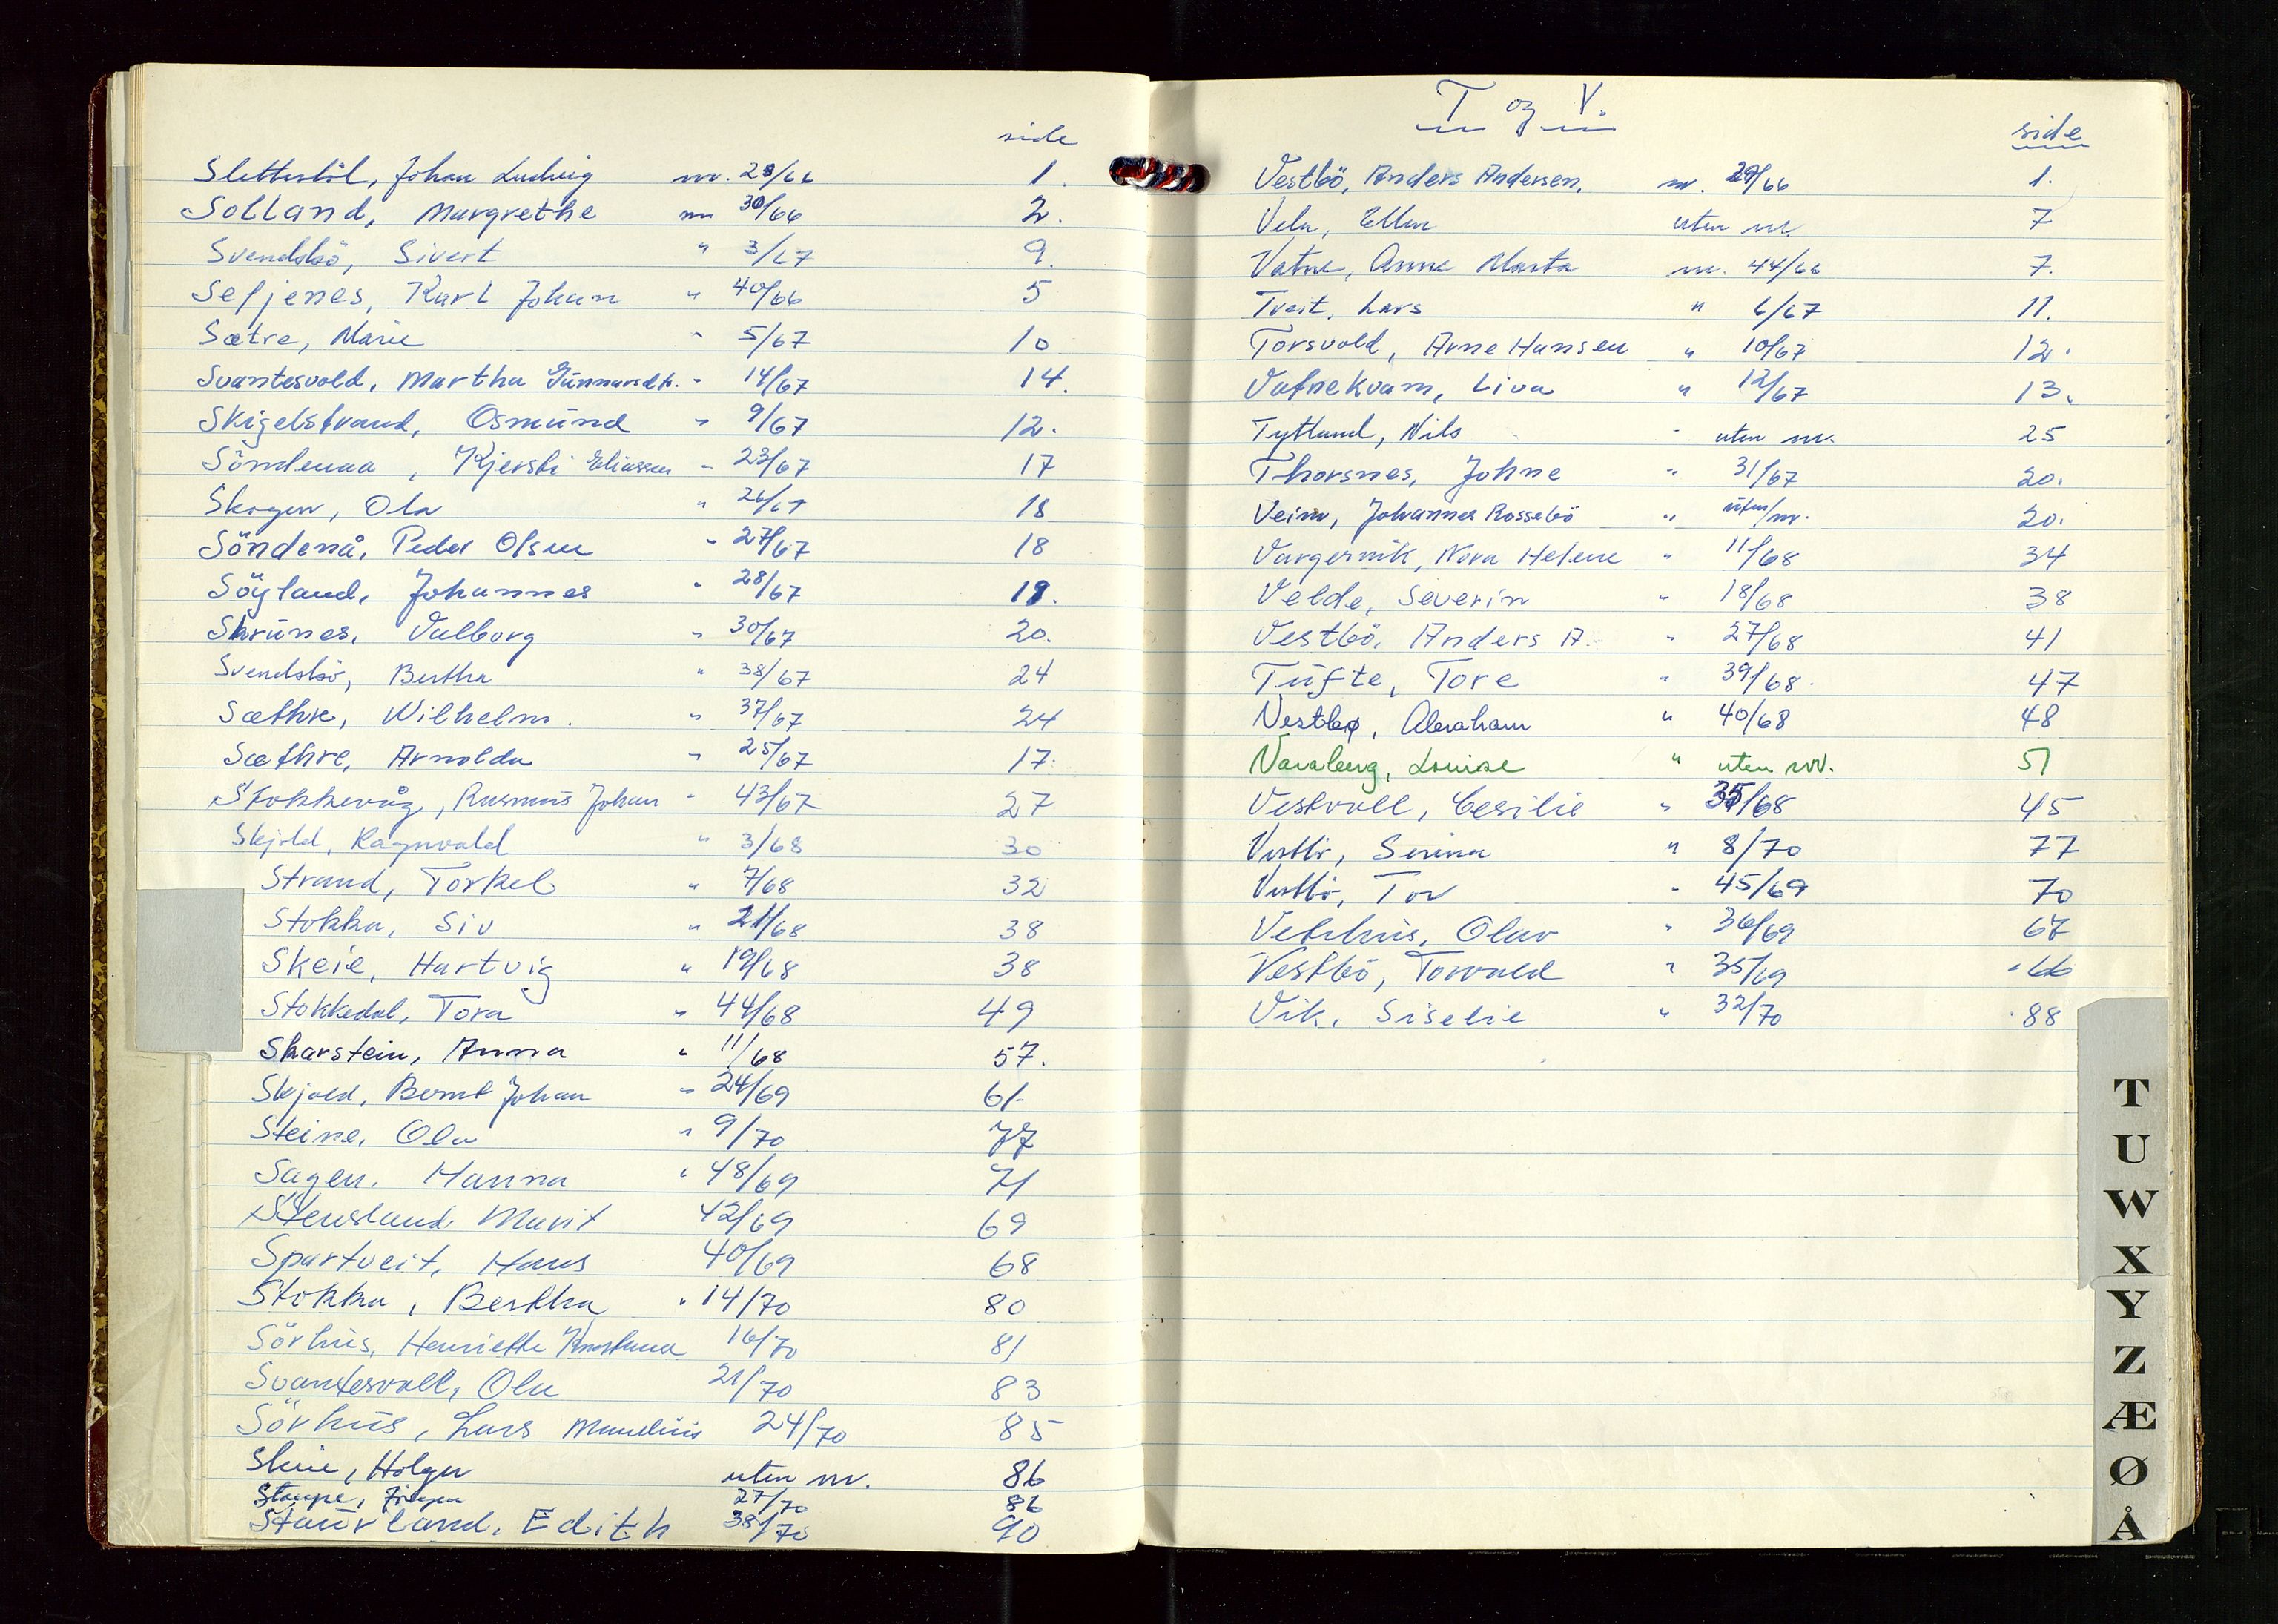 side
Slettestöl, Johan Ludvig nr. 28/66 1.
Solland, Margrethe nr 30/66 2.
Svendsbö, Sivert " 3/67 9.
Sefjenes, Karl Johan " 40/66 5
Sætre, Marie " 5/67 10
Svantesvold, Martha Gunnarsdt. " 14/67 14.
Skigelstrand, Osmund " 9/67 12.
Söndenaa, Kjersti Eliassen " 23/67 17
Skogen, Ola " 26/67 18
Söndenå, Peder Olsen " 27/67 18
Söyland, Johannes " 28/67 19.
Skrunes, Valborg " 30/67 20.
Svendsbö, Bertha " 38/67 24
Sæthre, Wilhelm. " 37/67 24
Sæthre, Arnolda " 25/67 17.
Stokkevåg, Rasmus Johan " 43/67 27
Skjold, Ragnvald " 3/68 30
Strand, Torkel " 7/68 32
Stokka, Siv " 21/68 38
Skeie, Hartvig " 19/68 38
Stokkedal, Tora " 44/68 49
Skarstein, Anna " 11/68 57.
Skjold, Bernt Johan " 24/69 61.
Steine, Ola " 9/70 77
Sagen, Hanna " 48/69 71
Stensland, Marit 42/69 69
Spartveit, Hans 40/69 68
Stokka, Bertha " 14/70 80
Sörhus, Henriette 16/70 81
Svantesvoll, Ola 21/70 83
Sörhus, Lars Maudius 24/70 85
Skeie, Holger uten nr. 86
Staupe, Jörgen 27/70 86
Staurland, Edith 38/70 90
T og V.
side
Vestbö, Anders Andersen, nr. 29/66 1.
Vela, Ellen uten nr. 7
Vatne, Anne Marta nr. 44/66 7.
Tveit, Lars " 6/67 11.
Torsvold, Arne Hansen " 10/67 12.
Vatnekvam, Liva " 12/67 13.
Tytland, Nils " uten nr. 25
Thorsnes, Johne " 31/67 20.
Veim, Johannes Rossebö " uten/nr. 20.
Vargervik, Nora Helene " 11/68 34
Velde, Severin " 18/68 38
Vestbö, Anders A. " 27/68 41
Tufte, Tore " 39/68. 47
Vestbø, Abraham " 40/68 48
Varaberg, Louise " uten nr. 51
Vestvoll, Cesilie " 35/68 45
Vestbö, Serina " 8/70 77
Vestbö, Tor " 45/69 70
Vetrhus, Olav " 36/69 67
Vestbö, Torvald " 35/69 66
Vik, Siselie " 32/70 88
T
U
W
X
Y
Z
Æ
Ø
Å